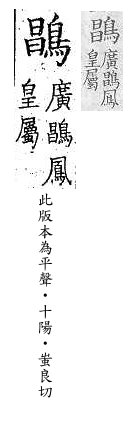 廣鳳
皇屬
廣鳳
皇屬
此版本為平聲・十陽・蚩良切